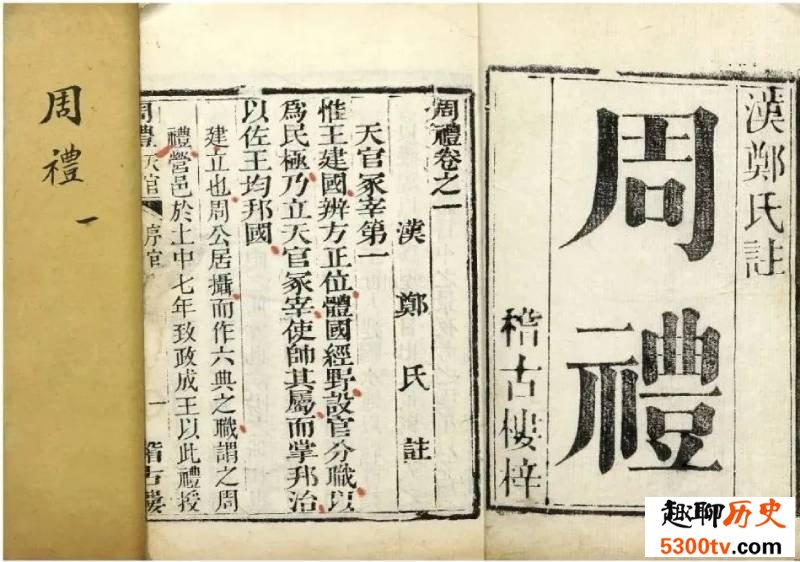 漢鄭氏註
周禮
稽古樓梓
周禮卷之一
漢鄭氏註
天官冢宰第一
惟王建國辨方正位體國經野設官分職以
爲民極乃立天官冢宰使帥其屬而掌邦治
以佐王均邦國
建立也周公居攝而作六典之職謂之周
禮營邑於土中七年致政成王以此禮授
周禮天官
序官
一
稽古樓
周禮
一
趣聊历史
5300tv.com